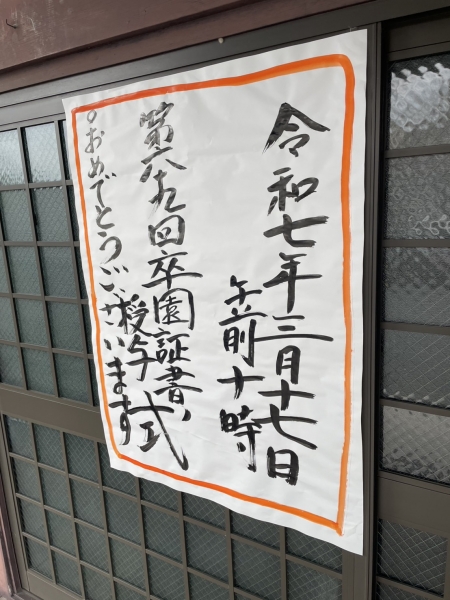 令和七年三月十七日
午前十時
第六九回卒園証書、
授与式
。おめでとうございます